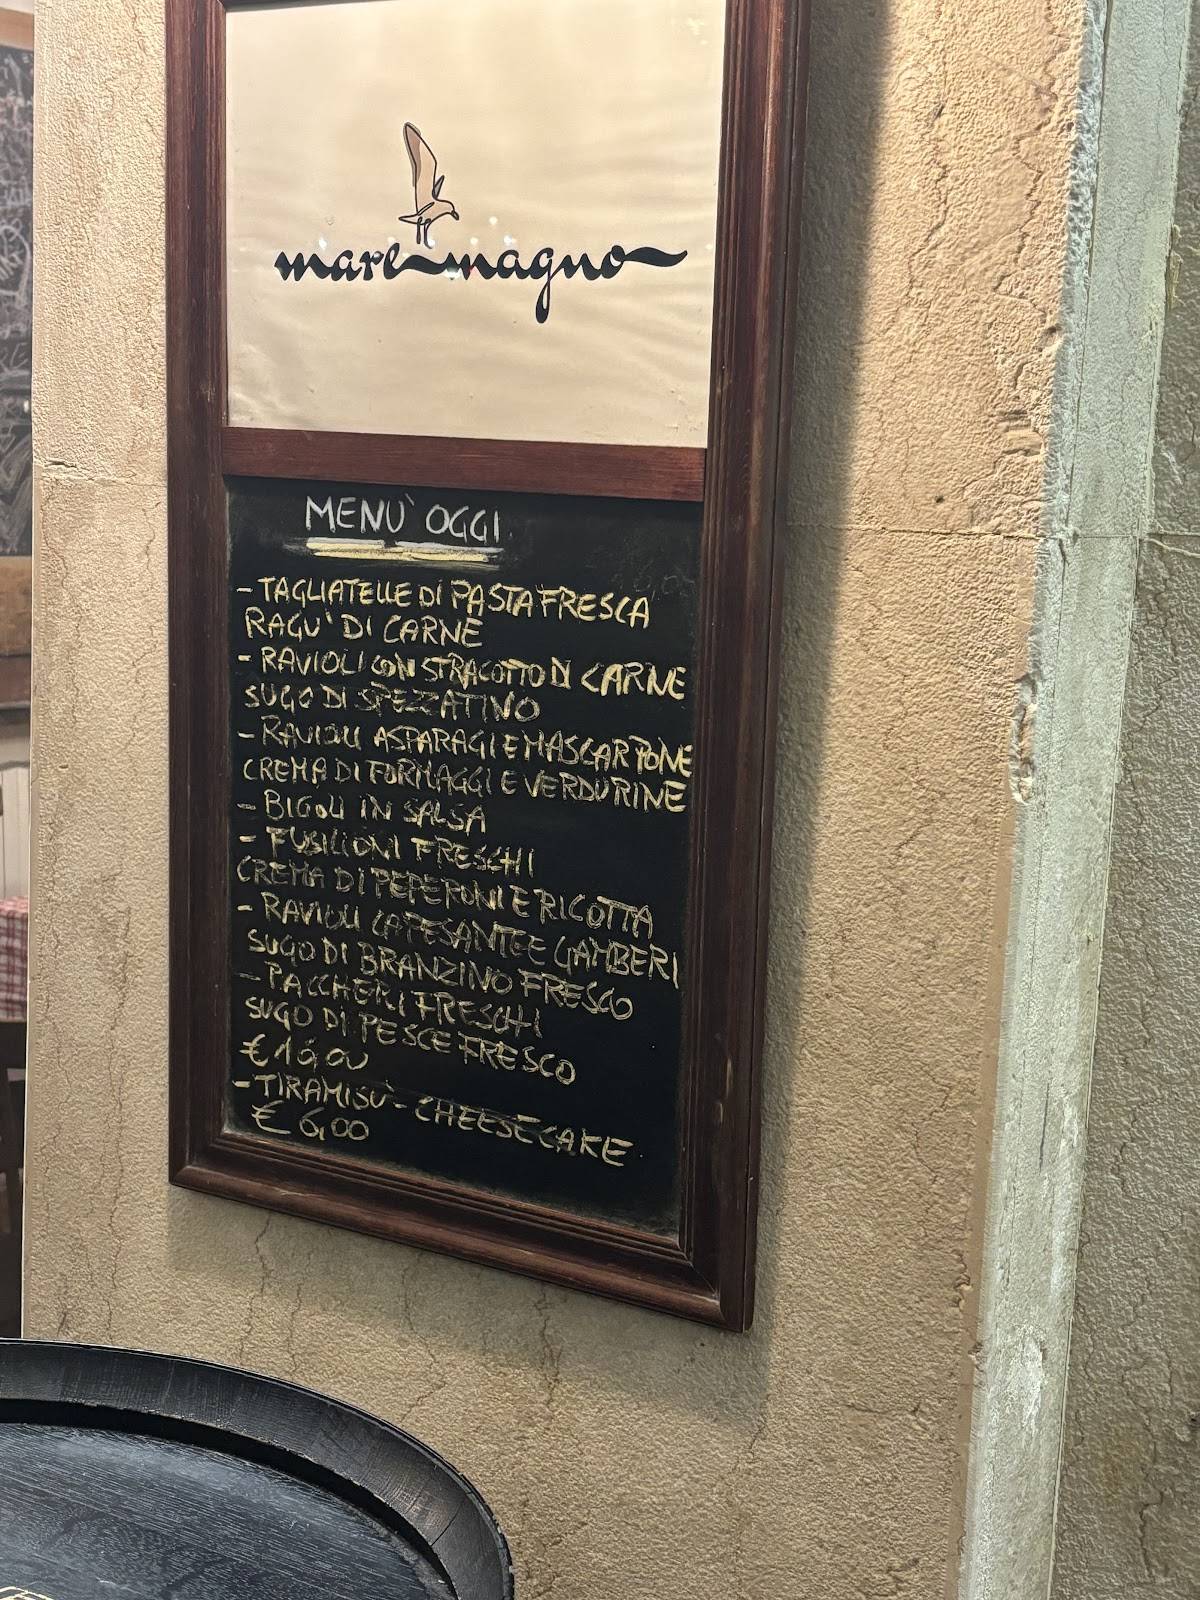 mare magno
MENU' OGGI
- TAGLIATELLE DI PASTA FRESCA
RAGU' DI CARNE
- RAVIOLI CON STRACOTTO DI CARNE
SUGO DI SPEZZATINO
- RAVIOLI ASPARAGI E MASCARPONE
CREMA DI FORMAGGI E VERDURINE
- BIGOLI IN SALSA
- FUSILIONI FRESCHI
CREMA DI PEPERONI E RICOTTA
- RAVIOLI CAPESANTE E GAMBERI
SUGO DI BRANZINO FRESCO
- PACCHERI FRESCHI
SUGO DI PESCE FRESCO
€ 16,00
- TIRAMISÙ - CHEESECAKE
€ 6,00